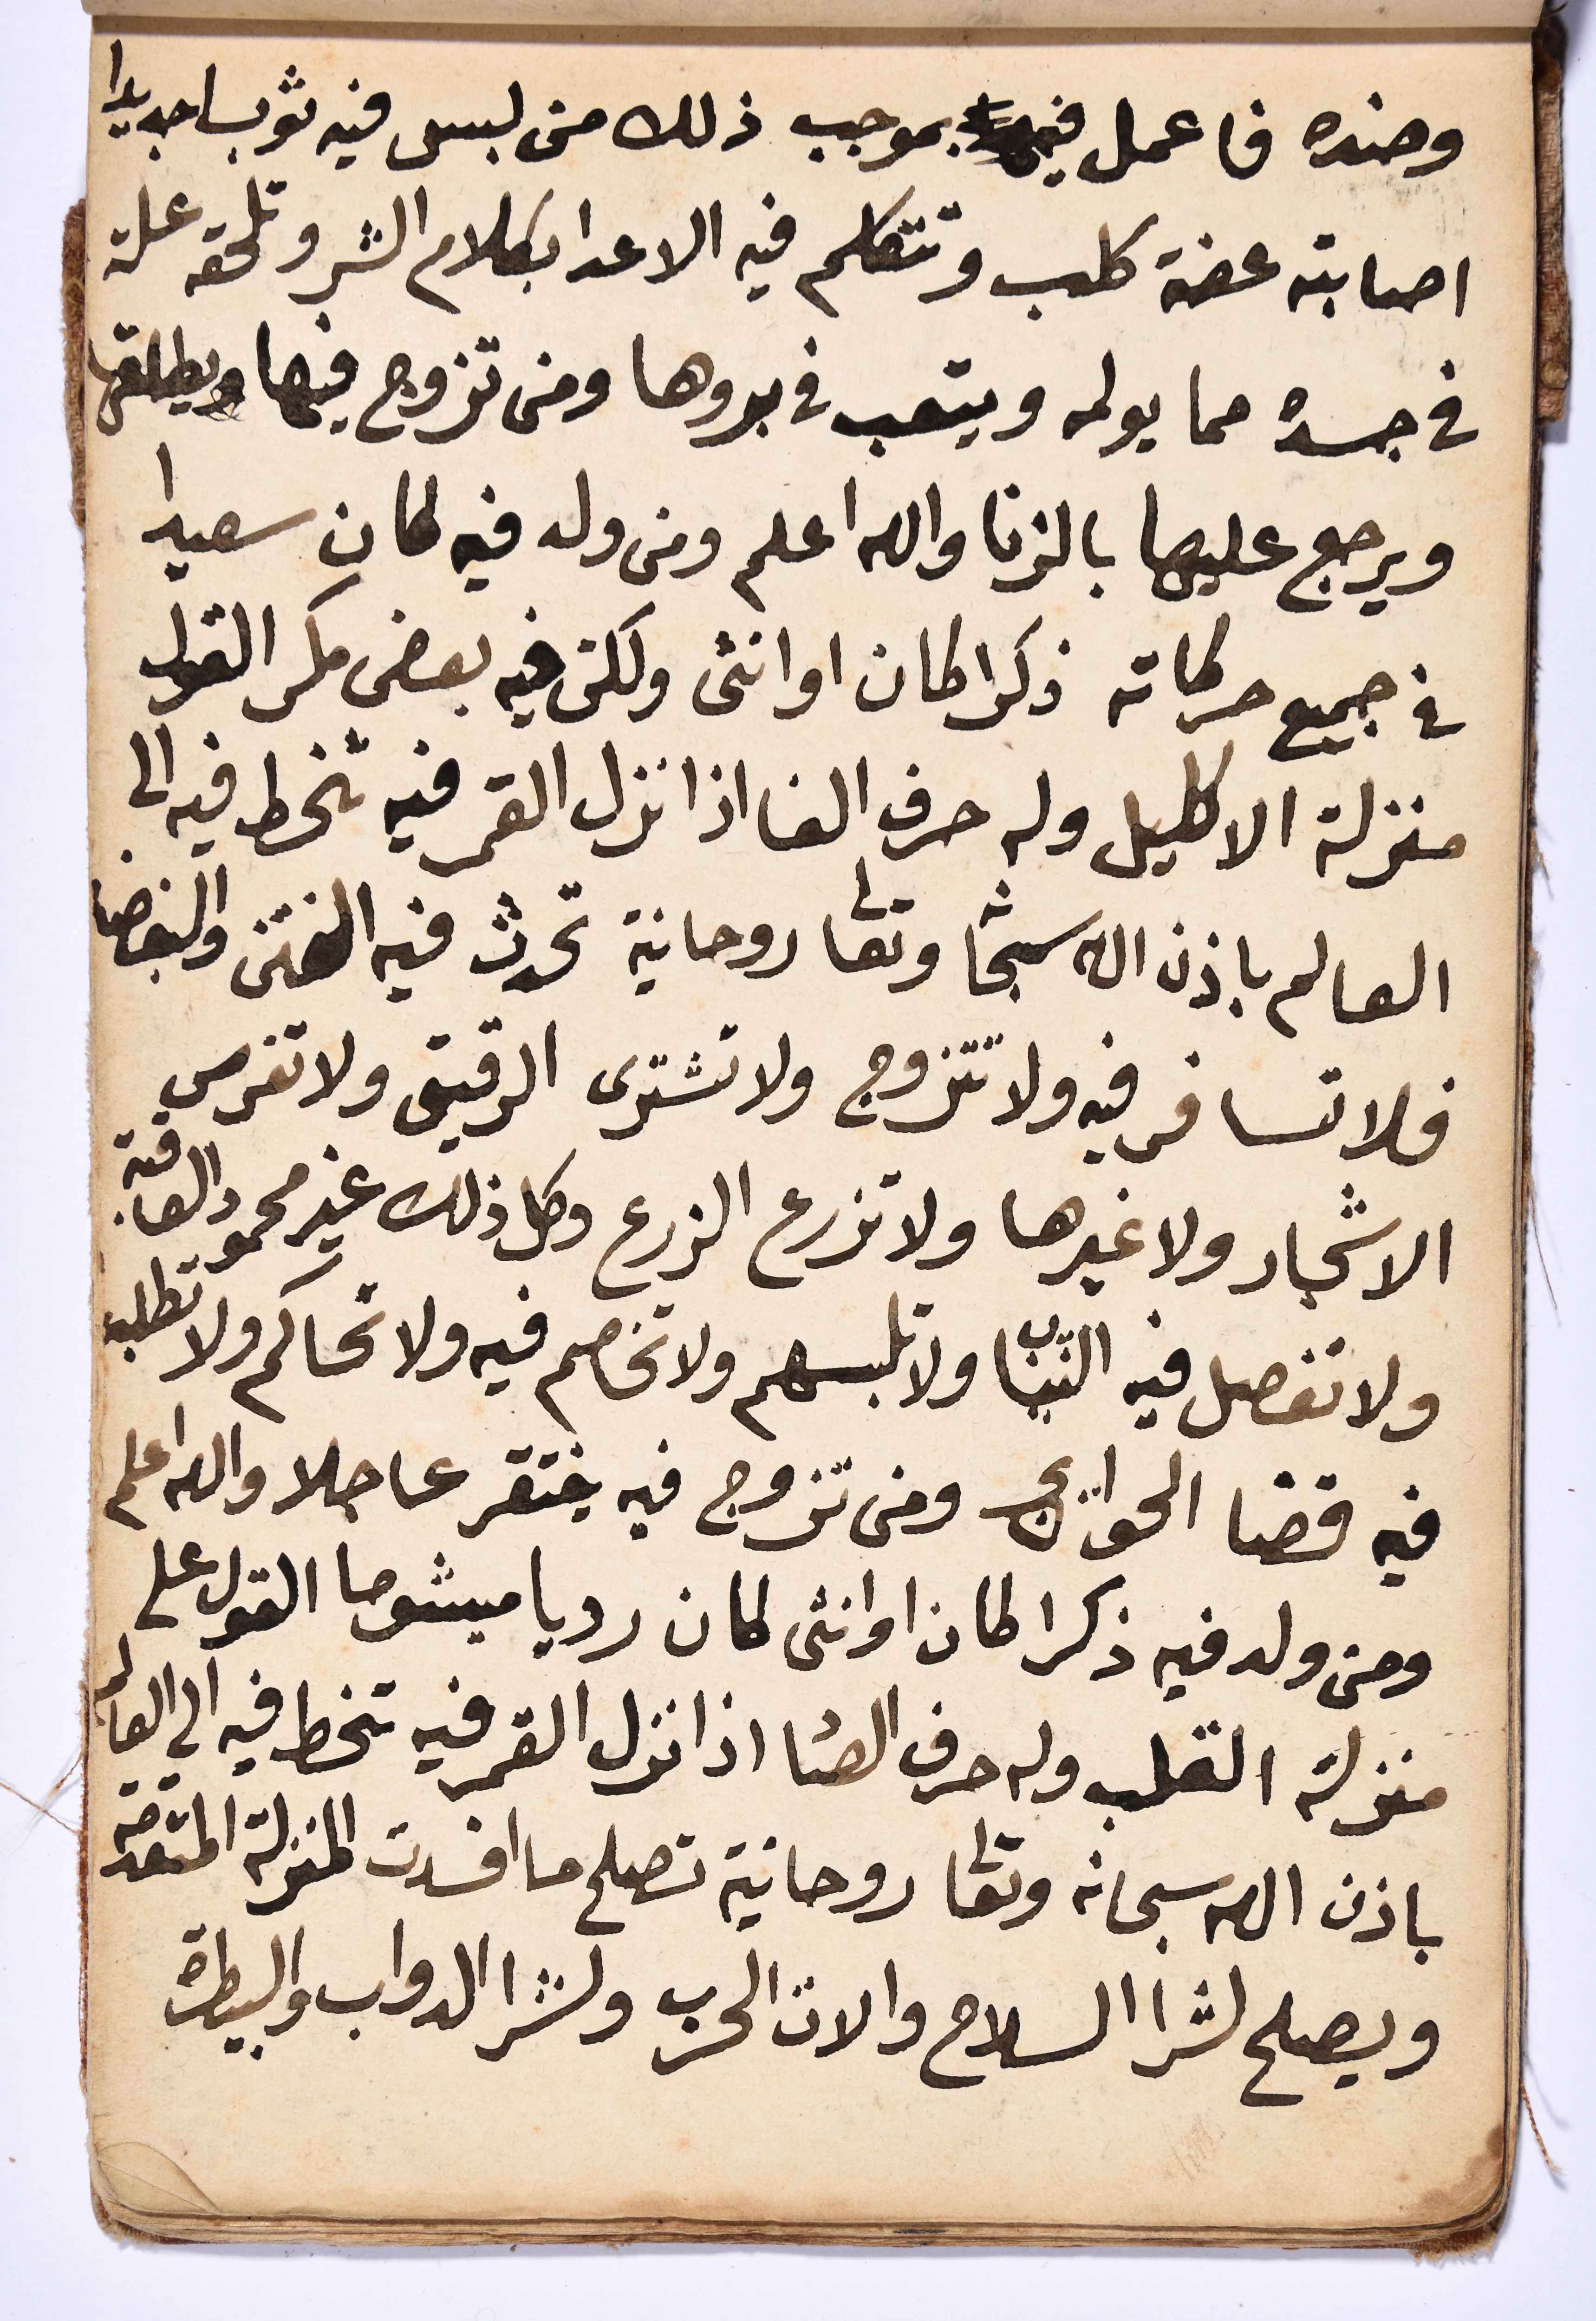 وضده فاعمل فيه بموجب ذلك من لبس فيه ثوبا جديدا
اصابته عضة كلب وتتكلم فيه الاعدا بكلام الشر وتلحقه علة
في جسده مما يولمه ويتعب في بروها ومن تزوج فيها ويطلقها
ويرجع عليها بالزنا والله اعلم ومن ولد فيه لكان سعيدا
في جميع حركاته ذكرا كان او انثى ولكن فيه بعض مكر القول
منزلة الاكليل وله حرف الفا اذا نزل القمر فيه تنحط فيه الى
العالم باذن الله سبحانه وتعالى روحانية تحدث فيه الفتن والبغضا
فلا تسافر فيه ولا تتزوج ولا تشترى الرقيق ولا تغرس
الاشجار ولا غيرها ولا تزرع الزرع وكل ذلك غير محمود العاقبة
ولا تفصل فيه الثياب ولا تلبسهم ولا تخاصم فيه ولا تحاكم ولا تطلب
فيه قضا الحوائج ومن تزوج فيه يفتقر عاجلا والله اعلم
ومن ولد فيه ذكرا كان او انثى لكان رديا ميشوما القول على
منزلة القلب وله حرف الصاد اذا نزل القمر فيه تنحط فيه الي العالم
باذن الله سبحانه وتعالى روحانية تصلح ما افسدت المنزلة المتقدمة
ويصلح لشرا السلاح والات الحرب ولشرا الدواب والبيطرة